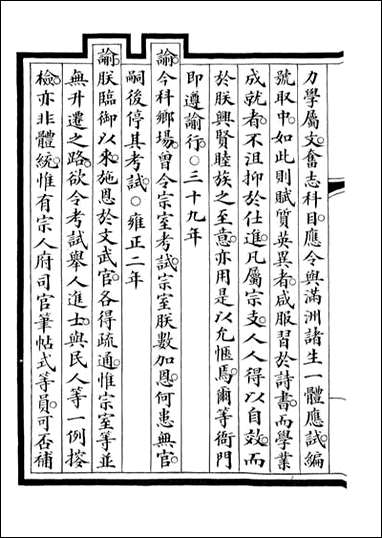 力學屬文奮志科目應令與滿洲諸生一體應試編
號取中如此則賦質英異者咸服習於詩書而學業
成就者不沮抑於仕進凡屬宗支人人得以自效而
於朕興賢睦族之至意亦用是以允愜焉爾等衙門
即遵諭行○三十九年
諭今科鄉場曾令宗室考試宗室朕數加恩何患無官
嗣後停其考試○雍正二年
諭朕臨御以來施恩於文武官各得疏通惟宗室等並
無升遷之路欲令考試舉人進士與民人等一例搉
檢亦非體統惟有宗人府司官筆帖式等員可否補